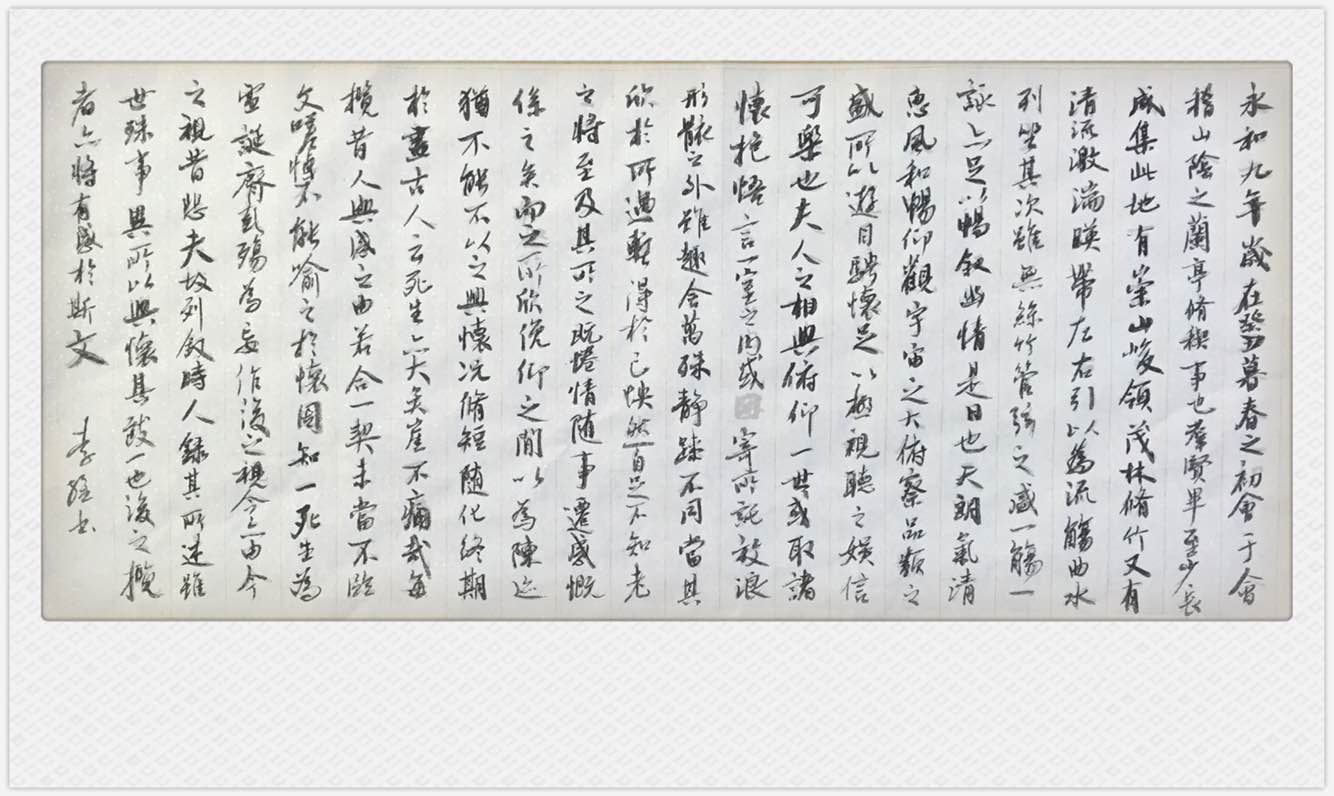 永和九年歲在癸丑暮春之初會于會
稽山陰之蘭亭脩稧事也羣賢畢至少長
咸集此地有崇山峻領茂林脩竹又有
清流激湍暎帶左右引以為流觴曲水
列坐其次雖無絲竹管弦之盛一觴一
詠亦足以暢叙幽情是日也天朗氣清
惠風和暢仰觀宇宙之大俯察品類之
盛所以遊目騁懷足以極視聽之娛信
可樂也夫人之相與俯仰一世或取諸
懷抱悟言一室之內或因寄所託放浪
形骸之外雖趣舍萬殊静躁不同當其
欣於所遇暫得於己怏然自足不知老
之將至及其所之既惓情随事遷感慨
係之矣向之所欣俛仰之閒以為陳迹
猶不能不以之興懷况脩短随化終期
於盡古人云死生亦大矣豈不痛哉每
攬昔人興感之由若合一契未嘗不臨
文嗟悼不能喻之於懷固知一死生為
虛誕齊彭殤為妄作後之視今亦由今
之視昔悲夫故列叙時人録其所述雖
世殊事異所以興懷其致一也後之攬
者亦將有感於斯文 李 書